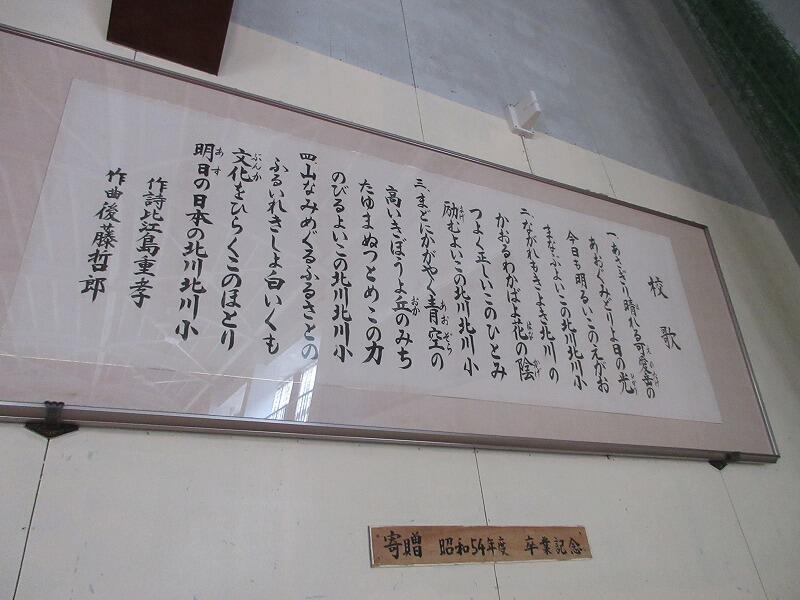 校歌
一、あさぎり晴れる可愛岳の
あおぐみどりよ日の光
今日も明るいこのえがお
まなぶよいこの北川北川小
二、ながれもきよき北川の
かおるわかばよ花の陰
つよく正しいこのひとみ
励むよいこの北川北川小
三、まどにかがやく青空の
高いきぼうよ丘のみち
たゆまぬつとめこの力
のびるよいこの北川北川小
四、山なみめぐるふるさとの
ふるいれきしよ白いくも
文化をひらくこのほとり
明日の日本の北川北川小
作詩比江島重孝
作曲後藤哲郎
寄贈 昭和54年度 卒業記念